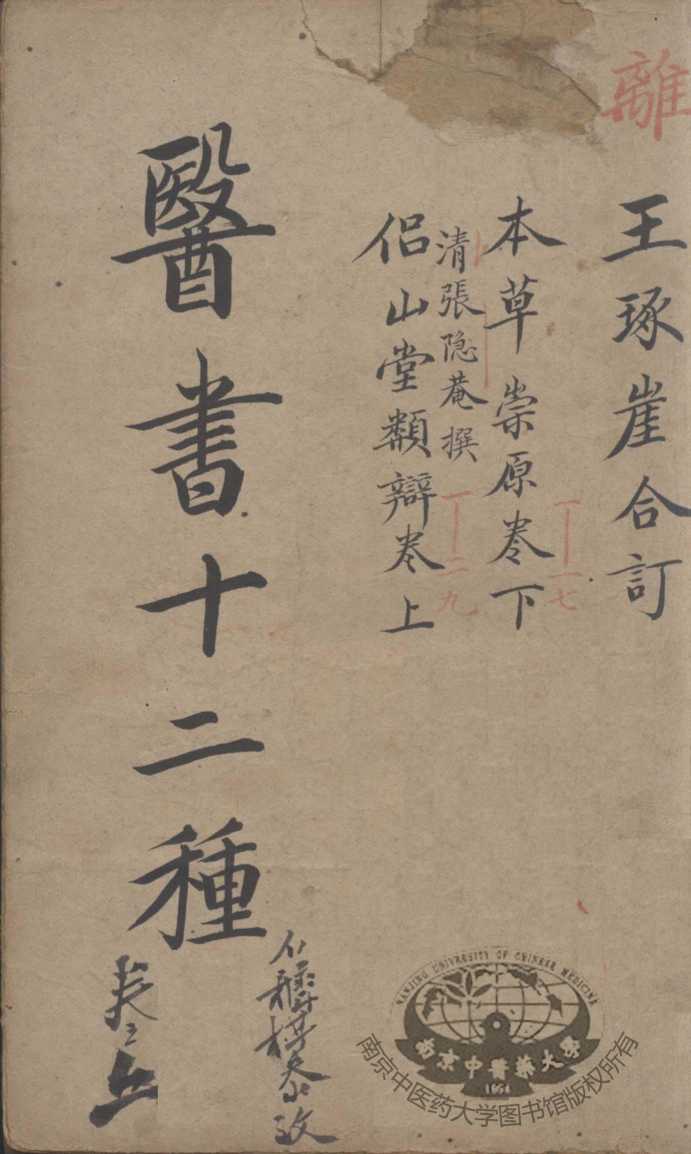 離
王琢崖合訂
本草崇原卷下
一一七
清張隐菴撰
侶山堂類辯卷上
一一二九
醫書十二種
NANJING UNIVERSITY OF CHINESE MEDICINE
南京中醫藥大學
1954
南京中医药大学图书馆版权所有